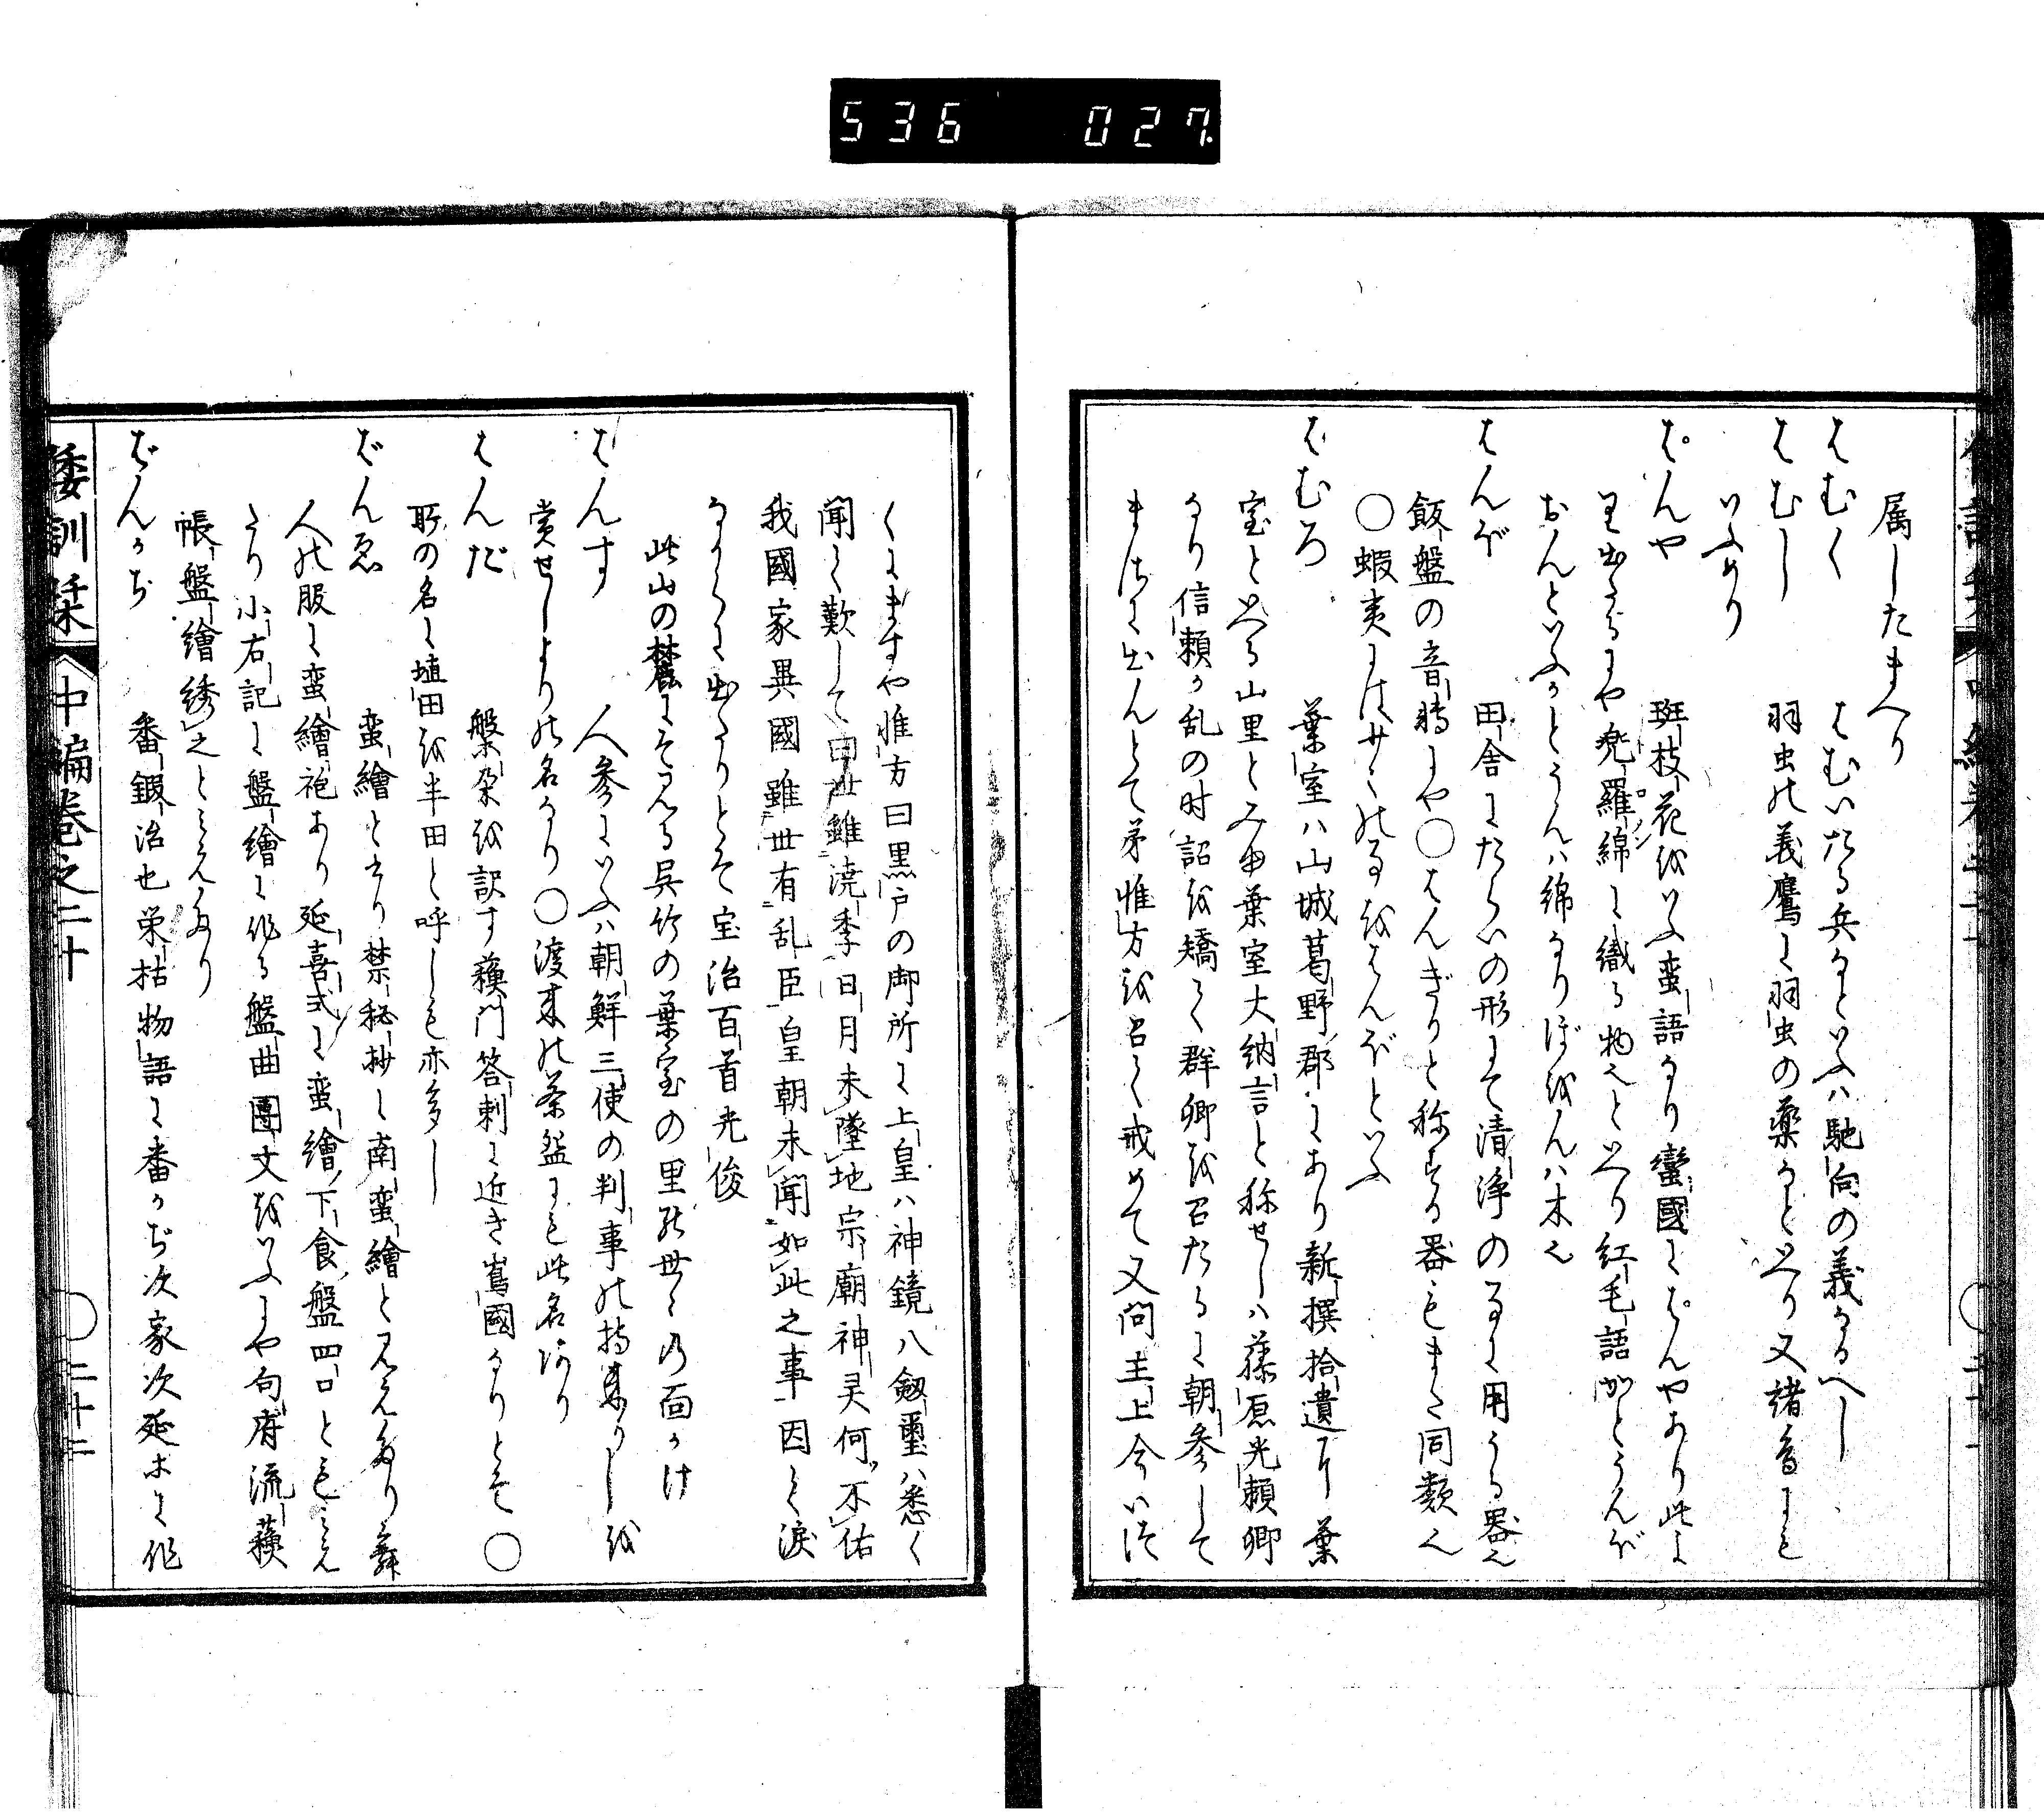 536 027
属したまへり
はむく はむいたる兵なといふハ馳向の義なるへし
はむし 羽虫の義鷹に羽虫の薬なといへり又諸鳥にも
いふめり
ぱんや 斑枝花をいふ蛮語なり蠻國にぱんやあり此よ
り出たるにや兜羅綿に織る物也といへり紅毛語かとうんぼ
おんといふかとうんハ綿なりぼをんハ木也
はんぼ 田舎にたらいの形にて清浄の事に用うる器也
飯盤の音轉にや○はんぎりと称する器もまた同類也
○蝦夷にはせくのるをはんぼといふ
はむろ 葉室ハ山城葛野郡にあり新撰拾遺に葉
室といへる山里とみゆ葉室大納言と称せしハ藤原光頼卿
なり信頼か乱の時詔を矯て群卿を召たるに朝参して
まさに出んとて弟惟方を召て戒めて又問主上今いつ
くにますや惟方曰黒戸の御所に上皇ハ神鏡ハ劔璽ハ悉く
聞て歎して曰世雖澆季日月未墜地宗廟神灵何不佑
我國家異國雖世有乱臣皇朝未聞如此之事因て涙
なからに出たりとそ宝治百首光俊
此山の麓にそみる呉竹の葉室の里の世々の面かけ
はんす 人参にいふハ朝鮮三使の判事の持来りしを
賞せしよりの名なり○渡来の茶盌にも此名あり
はんだ 槃朶を訳す蘓門答剌に近き嶌國なりとそ○
所の名に埴田を半田と呼しも亦多し
ばんゑ 蛮繪と云り禁秘抄に南蛮繪とみえたり舞
人の服に蛮繪袍あり延喜式に蛮繪下食盤四口ともみえ
たり小右記に盤繪に作る盤曲團文をいふにや句府流蘓
帳盤繪綉之とみえたり
ばんかぢ 番鍜治也栄枯物語に番かぢ次家次延ホに作
倭訓栞 中編巻之二十 ○二十二